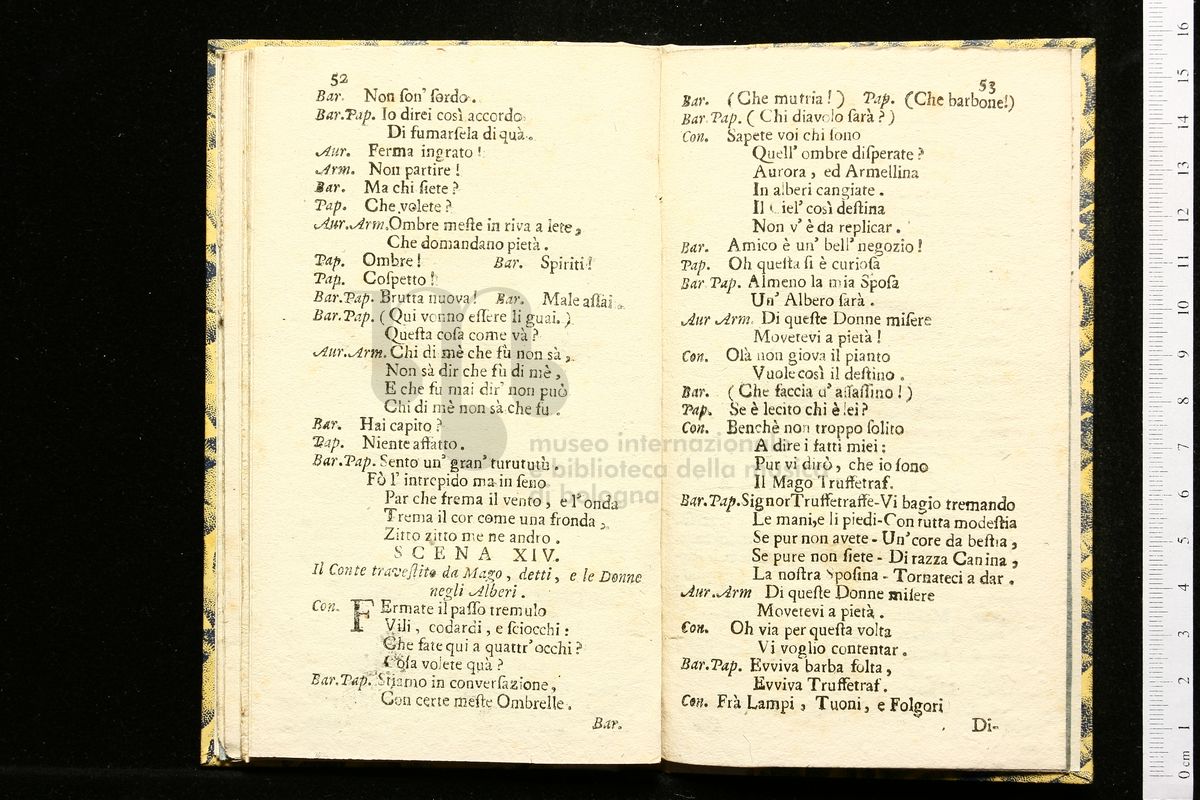 52
Bar. Non ſon' ſordo.
Bar.Pap. Io direi così accordo
Di fumarſela di quà.
Aur. Ferma ingrato!
Arm. Non partire!
Bar. Ma chi ſiete?
Pap. Che volete?
Aur.Arm. Ombre meſte in riva a lete,
Che domandano pietà.
Pap. Ombre! Bar. Spiriti!
Pap. Coſpetto!
Bar.Pap. Brutta nuova! Bar. Male aſſai.
Bar.Pap. (Qui vonno eſſere li guai.)
Queſta coſa come và?
Aur.Arm. Chi di mè che fù non sà,
Non sà dir che fù di mè,
E che fu mai dir' non può
Chi di mè non sà che fu.
Bar. Hai capito?
Pap. Niente affatto.
Bar.Pap. Sento un' gran' turututù.
Fò l' intrepido ma in ſeno
Par che frema il vento, e l'onda
Trema il cor come una fronda,
Zitto zitto me ne andro.
SCENA XIV.
Il Conte traveſlito da Mago, detti, e le Donne
negli Alberi.
Con. FErmate il paſſo tremulo
Vili, codardi, e ſciocchi:
Che fate qui a quattr' occhi?
Coſa volete quà?
Bar.Pap. Stiamo in converſazione,
Con certe meſte Ombrelle.
Bar.
53
Bar. (Che mutria!) Pap. (Che barbone!)
Bar.Pap. (Chi diavolo ſarà?)
Con. Sapete voi chi ſono
Quell' ombre diſperate?
Aurora, ed Armellina
In alberi cangiate.
Il Ciel' così deſtina
Non v' è da replicar.
Bar. Amico è un' bell' negozio!
Pap. Oh queſta ſi è curioſa
Bar Pap. Almeno la mia Spoſa
Un' Albero ſarà.
Aur Arm. Di queſte Donne miſere
Movetevi a pietà!
Con. Olà non giova il pianto
Vuole così il deſtino.
Bar. (Che faccia d' aſſaſſino!)
Pap. Se è lecito chi è lei?
Con. Benchè non troppo ſolito
A dire i fatti miei:
Pur vi dirò, che io ſono
Il Mago Truffetraf.
Bar.Pap. Signor Truffetraffe-Vi bagio tremando
Le mani,e li piedi-Con tutta modeſtia
Se pur non avete - Un'core da beſtia,
Se pure non ſiete - Di razza Canina,
La noſtra Spoſina - Tornateci a dar.
Aur.Arm Di queſte Donne miſere
Movetevi a pietà.
Con. Oh via per queſta volta
Vi voglio contentar.
Bar.Pap. Evviva barba folta,
Evviva Truffetraf.
Con. Frà Lampi, Tuoni, e Folgori
Di-
museo internazionale
e biblioteca della musica
di bologna
0 cm 1 2 3 4 5 6 7 8 9 10 11 12 13 14 15 16